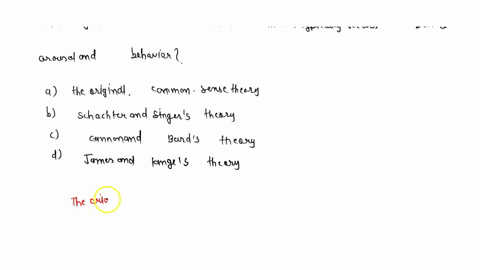 arousal and behavior?
a) the original, common-sense theory
b) Schachter and Singer's theory
c) cannon and Bard's theory
d) James and lange's theory
The